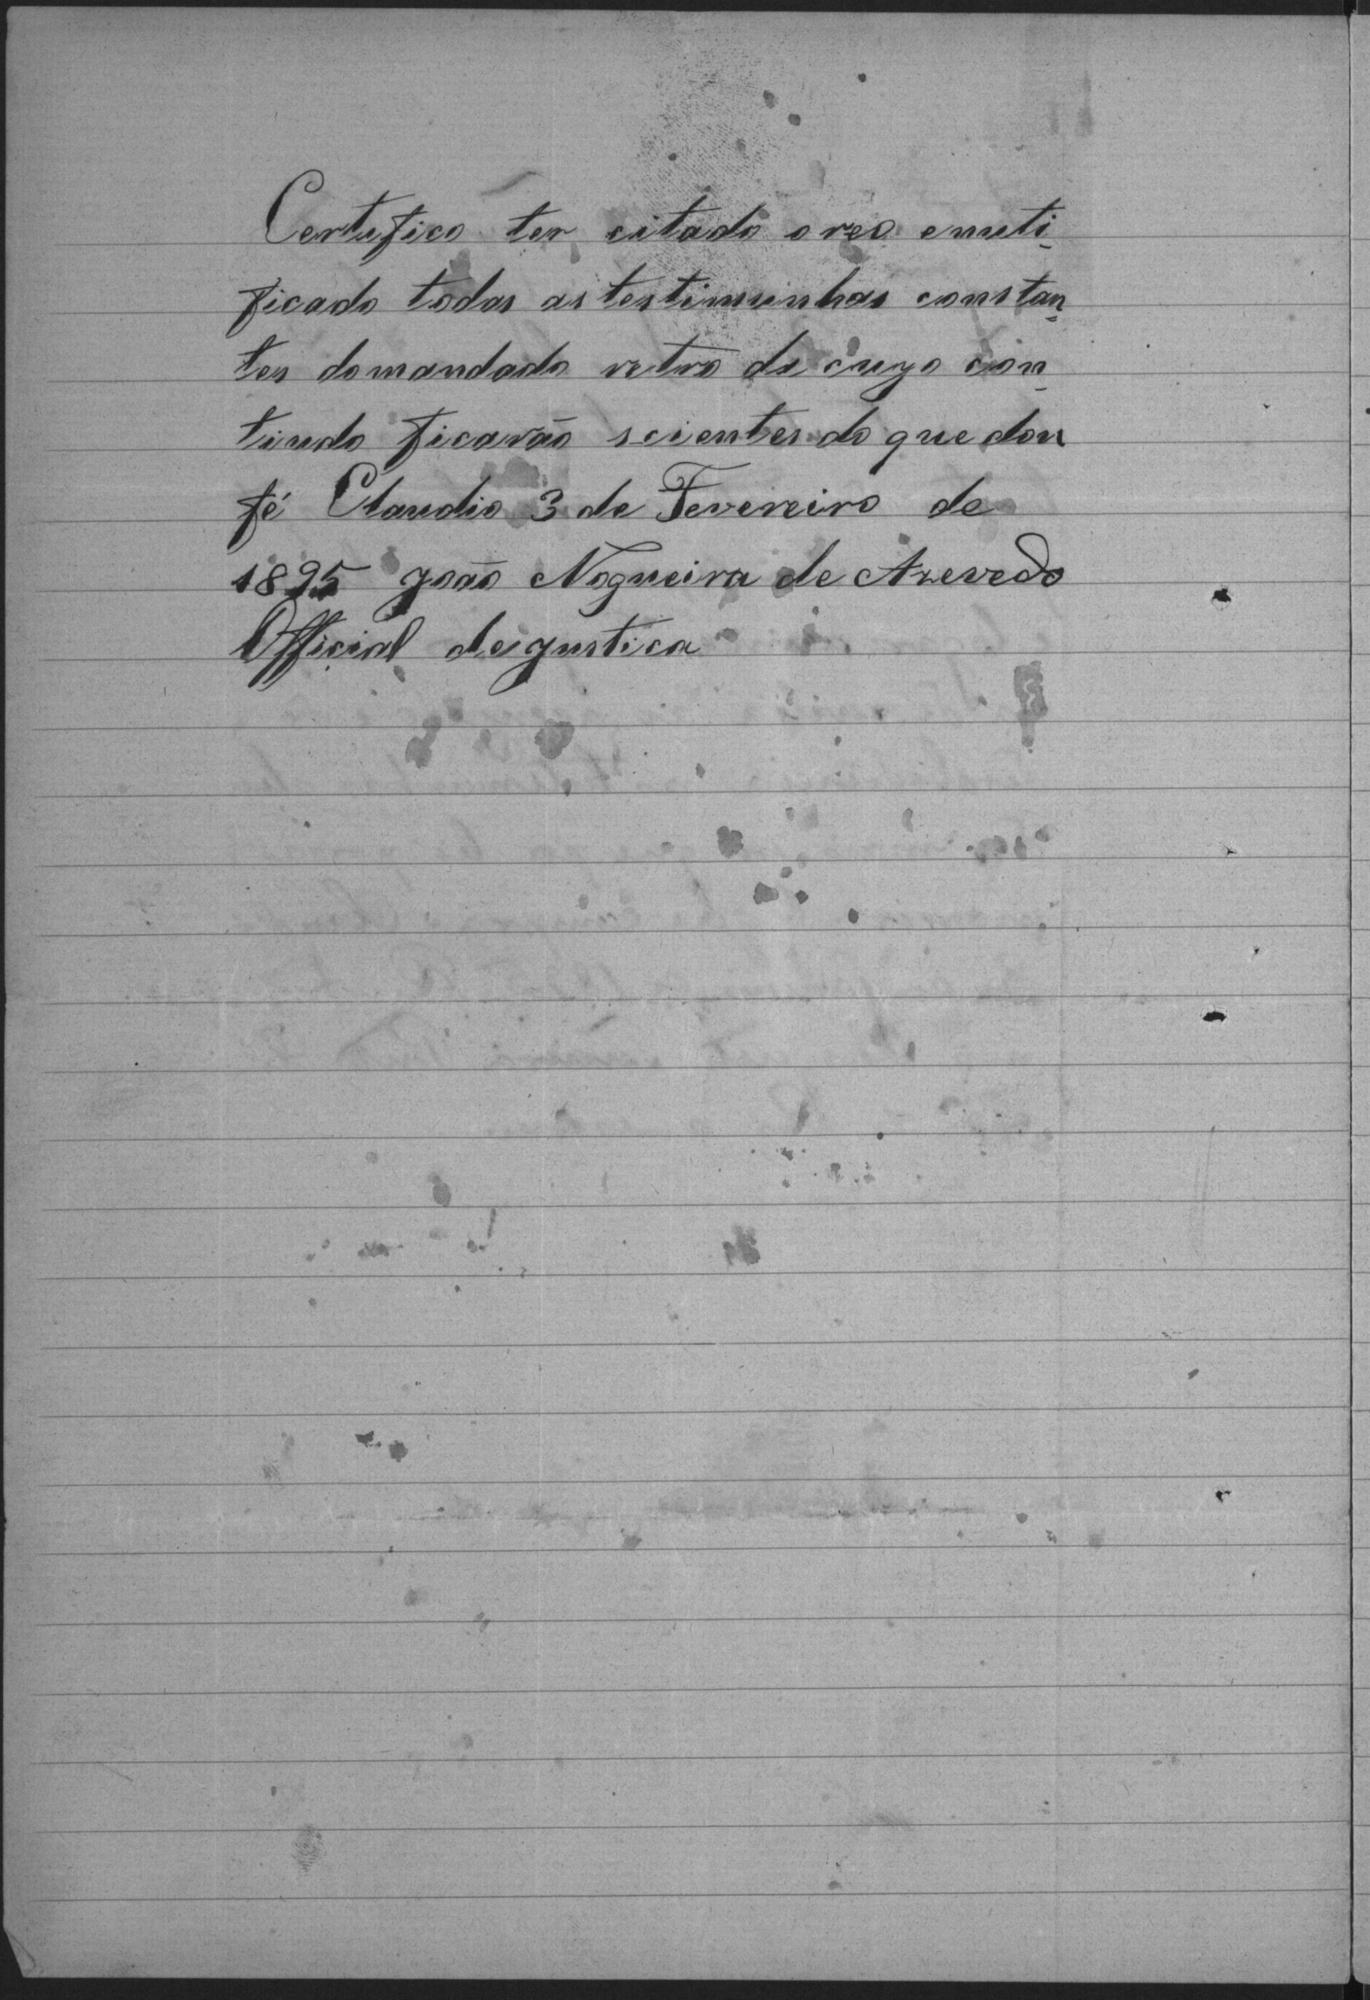 Certifico ter citado o reo e nuti-
ficado todas as testimunhas constan-
tes do mandado retro de cuyo con-
tiudo ficarão scientes do que dou
fé Claudio 3 de Fevereiro de
1895 João Nogueira de Azevedo
Official de justica